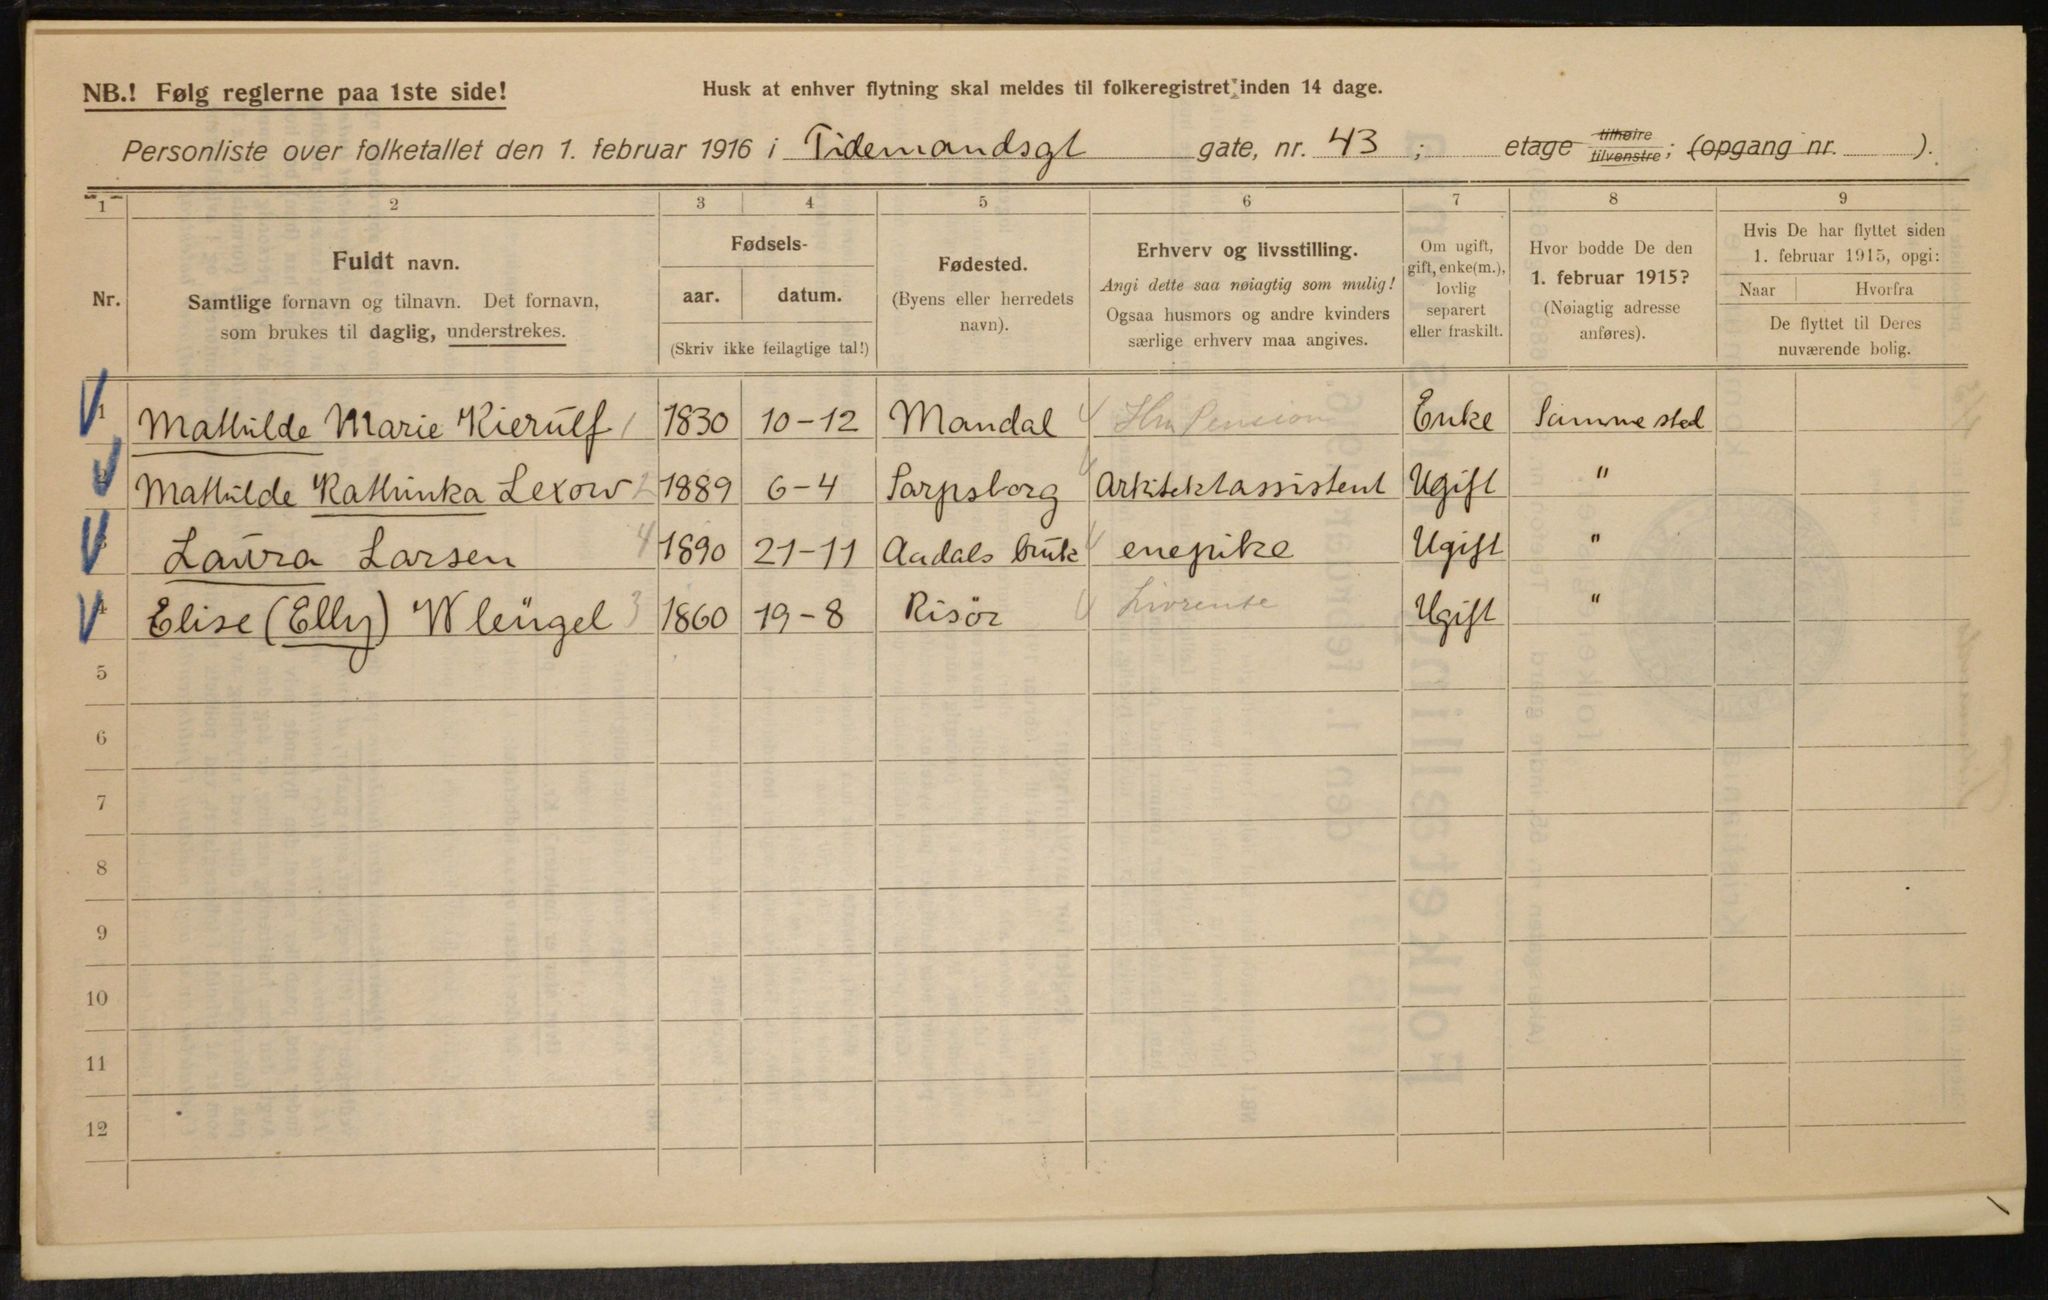 NB.! Følg reglerne paa 1ste side!
Husk at enhver flytning skal meldes til folkeregistret inden 14 dage.
Personliste over folketallet den 1. februar 1916 i Tidemandsgt gate, nr. 43 ; etage tilhøire tilvenstre ; (opgang nr. ).
1 2 3 4 5 6 7 8 9
Nr.
Fuldt navn.
Samtlige fornavn og tilnavn. Det fornavn,
som brukes til daglig, understrekes.
Fødsels-
aar. datum.
(Skriv ikke feilagtige tal!)
Fødested.
(Byens eller herredets
navn).
Erhverv og livsstilling.
Angi dette saa nøiagtig som mulig!
Ogsaa husmors og andre kvinders
særlige erhverv maa angives.
Om ugift,
gift, enke(m.),
lovlig
separert
eller fraskilt.
Hvor bodde De den
1. februar 1915?
(Nøiagtig adresse
anføres).
Hvis De har flyttet siden
1. februar 1915, opgi:
Naar Hvorfra
De flyttet til Deres
nuværende bolig.
1 Mathilde Marie Kierulf 1 1830 10-12 Mandal Pension Enke Samme sted
Mathilde Kathinka Lexow 2 1889 6-4 Sarpsborg Arkitektassistent Ugift "
3 Laura Larsen 4 1890 21-11 Aadals bruk enepike Ugift "
4 Elise (Elly) Wleügel 3 1860 19-8 Risör Livrente Ugift "
5
6
7
8
9
10
11
12